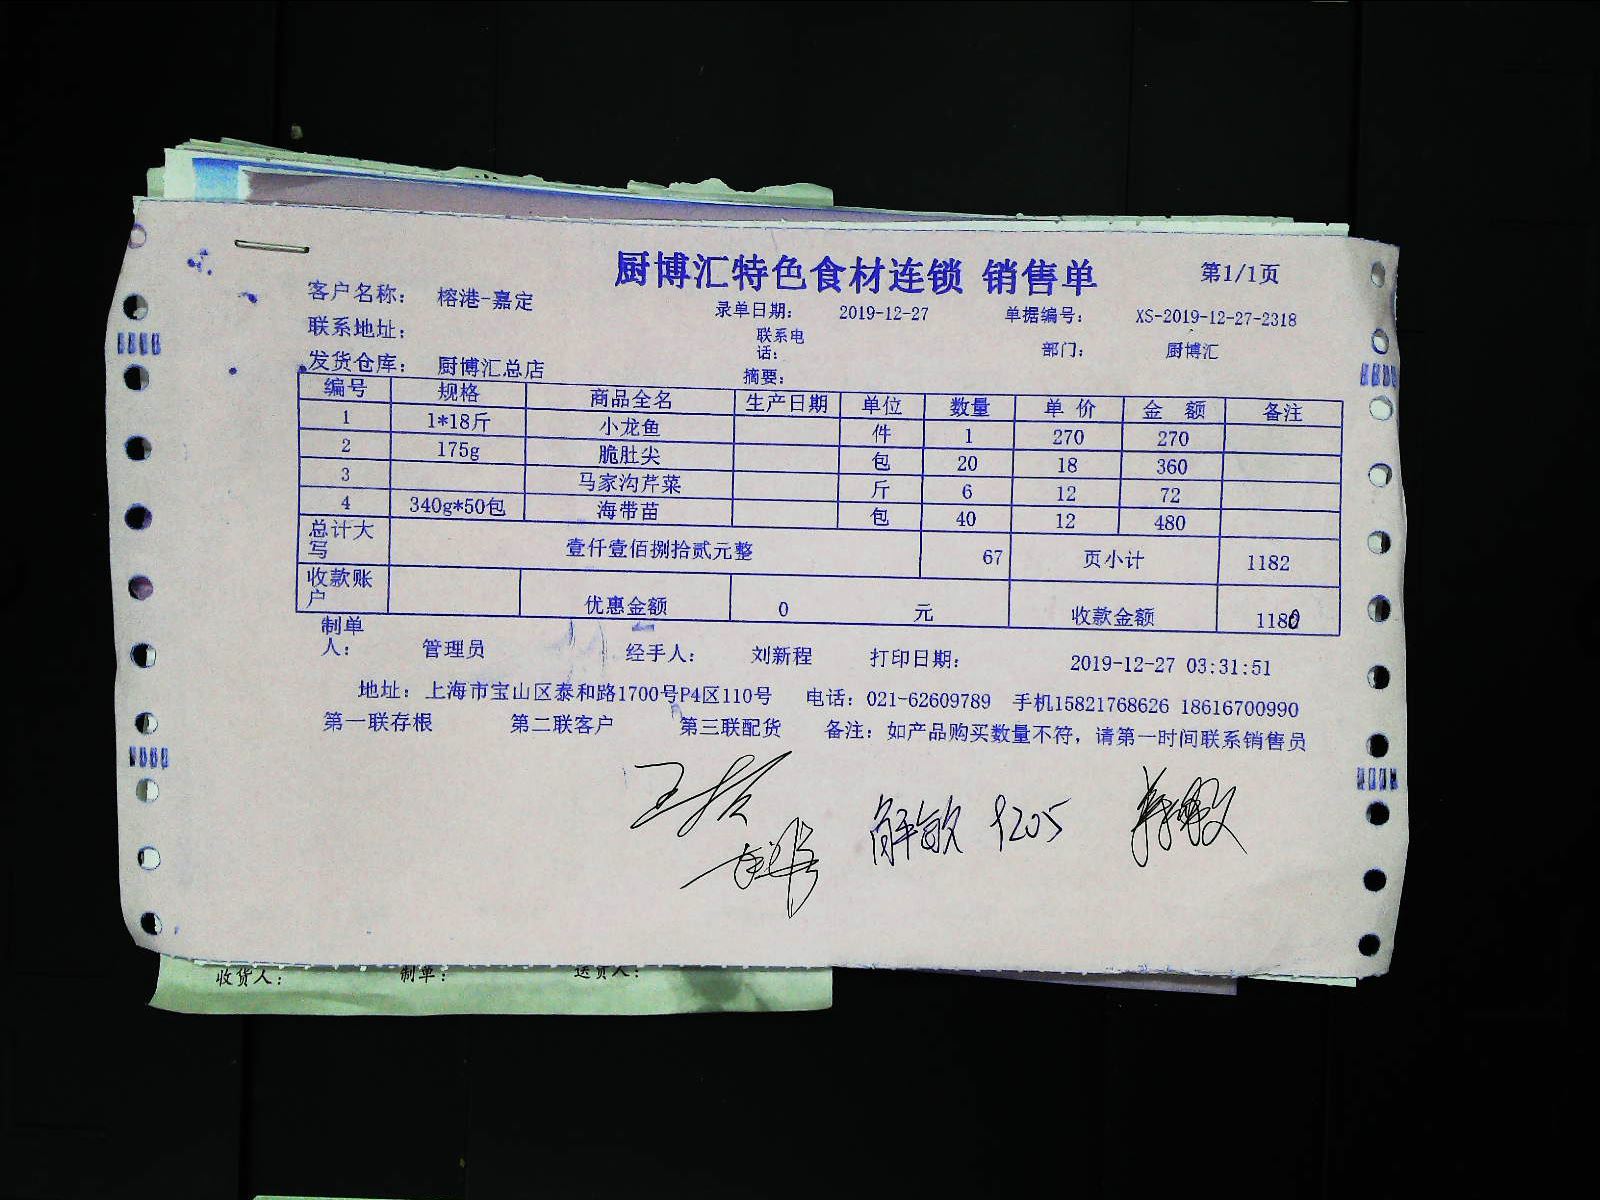 厨博汇特色食材连锁 销售单 第1/1页
客户名称: 榕港-嘉定 录单日期: 2019-12-27 单据编号: XS-2019-12-27-2318
联系地址: 联系电话: 部门: 厨博汇
发货仓库: 厨博汇总店 摘要:
编号 规格 商品全名 生产日期 单位 数量 单 价 金 额 备注
1 1*18斤 小龙鱼 件 1 270 270
2 175g 脆肚尖 包 20 18 360
3 马家沟芹菜 斤 6 12 72
4 340g*50包 海带苗 包 40 12 480
总计大写 壹仟壹佰捌拾贰元整 67 页小计 1182
收款账户 优惠金额 0 元 收款金额 1180
制单人: 管理员 经手人: 刘新程 打印日期: 2019-12-27 03:31:51
地址: 上海市宝山区泰和路1700号P4区110号 电话: 021-62609789 手机15821768626 18616700990
第一联存根 第二联客户 第三联配货 备注: 如产品购买数量不符, 请第一时间联系销售员
解敏 1205
收货人: 制单: 送货人: